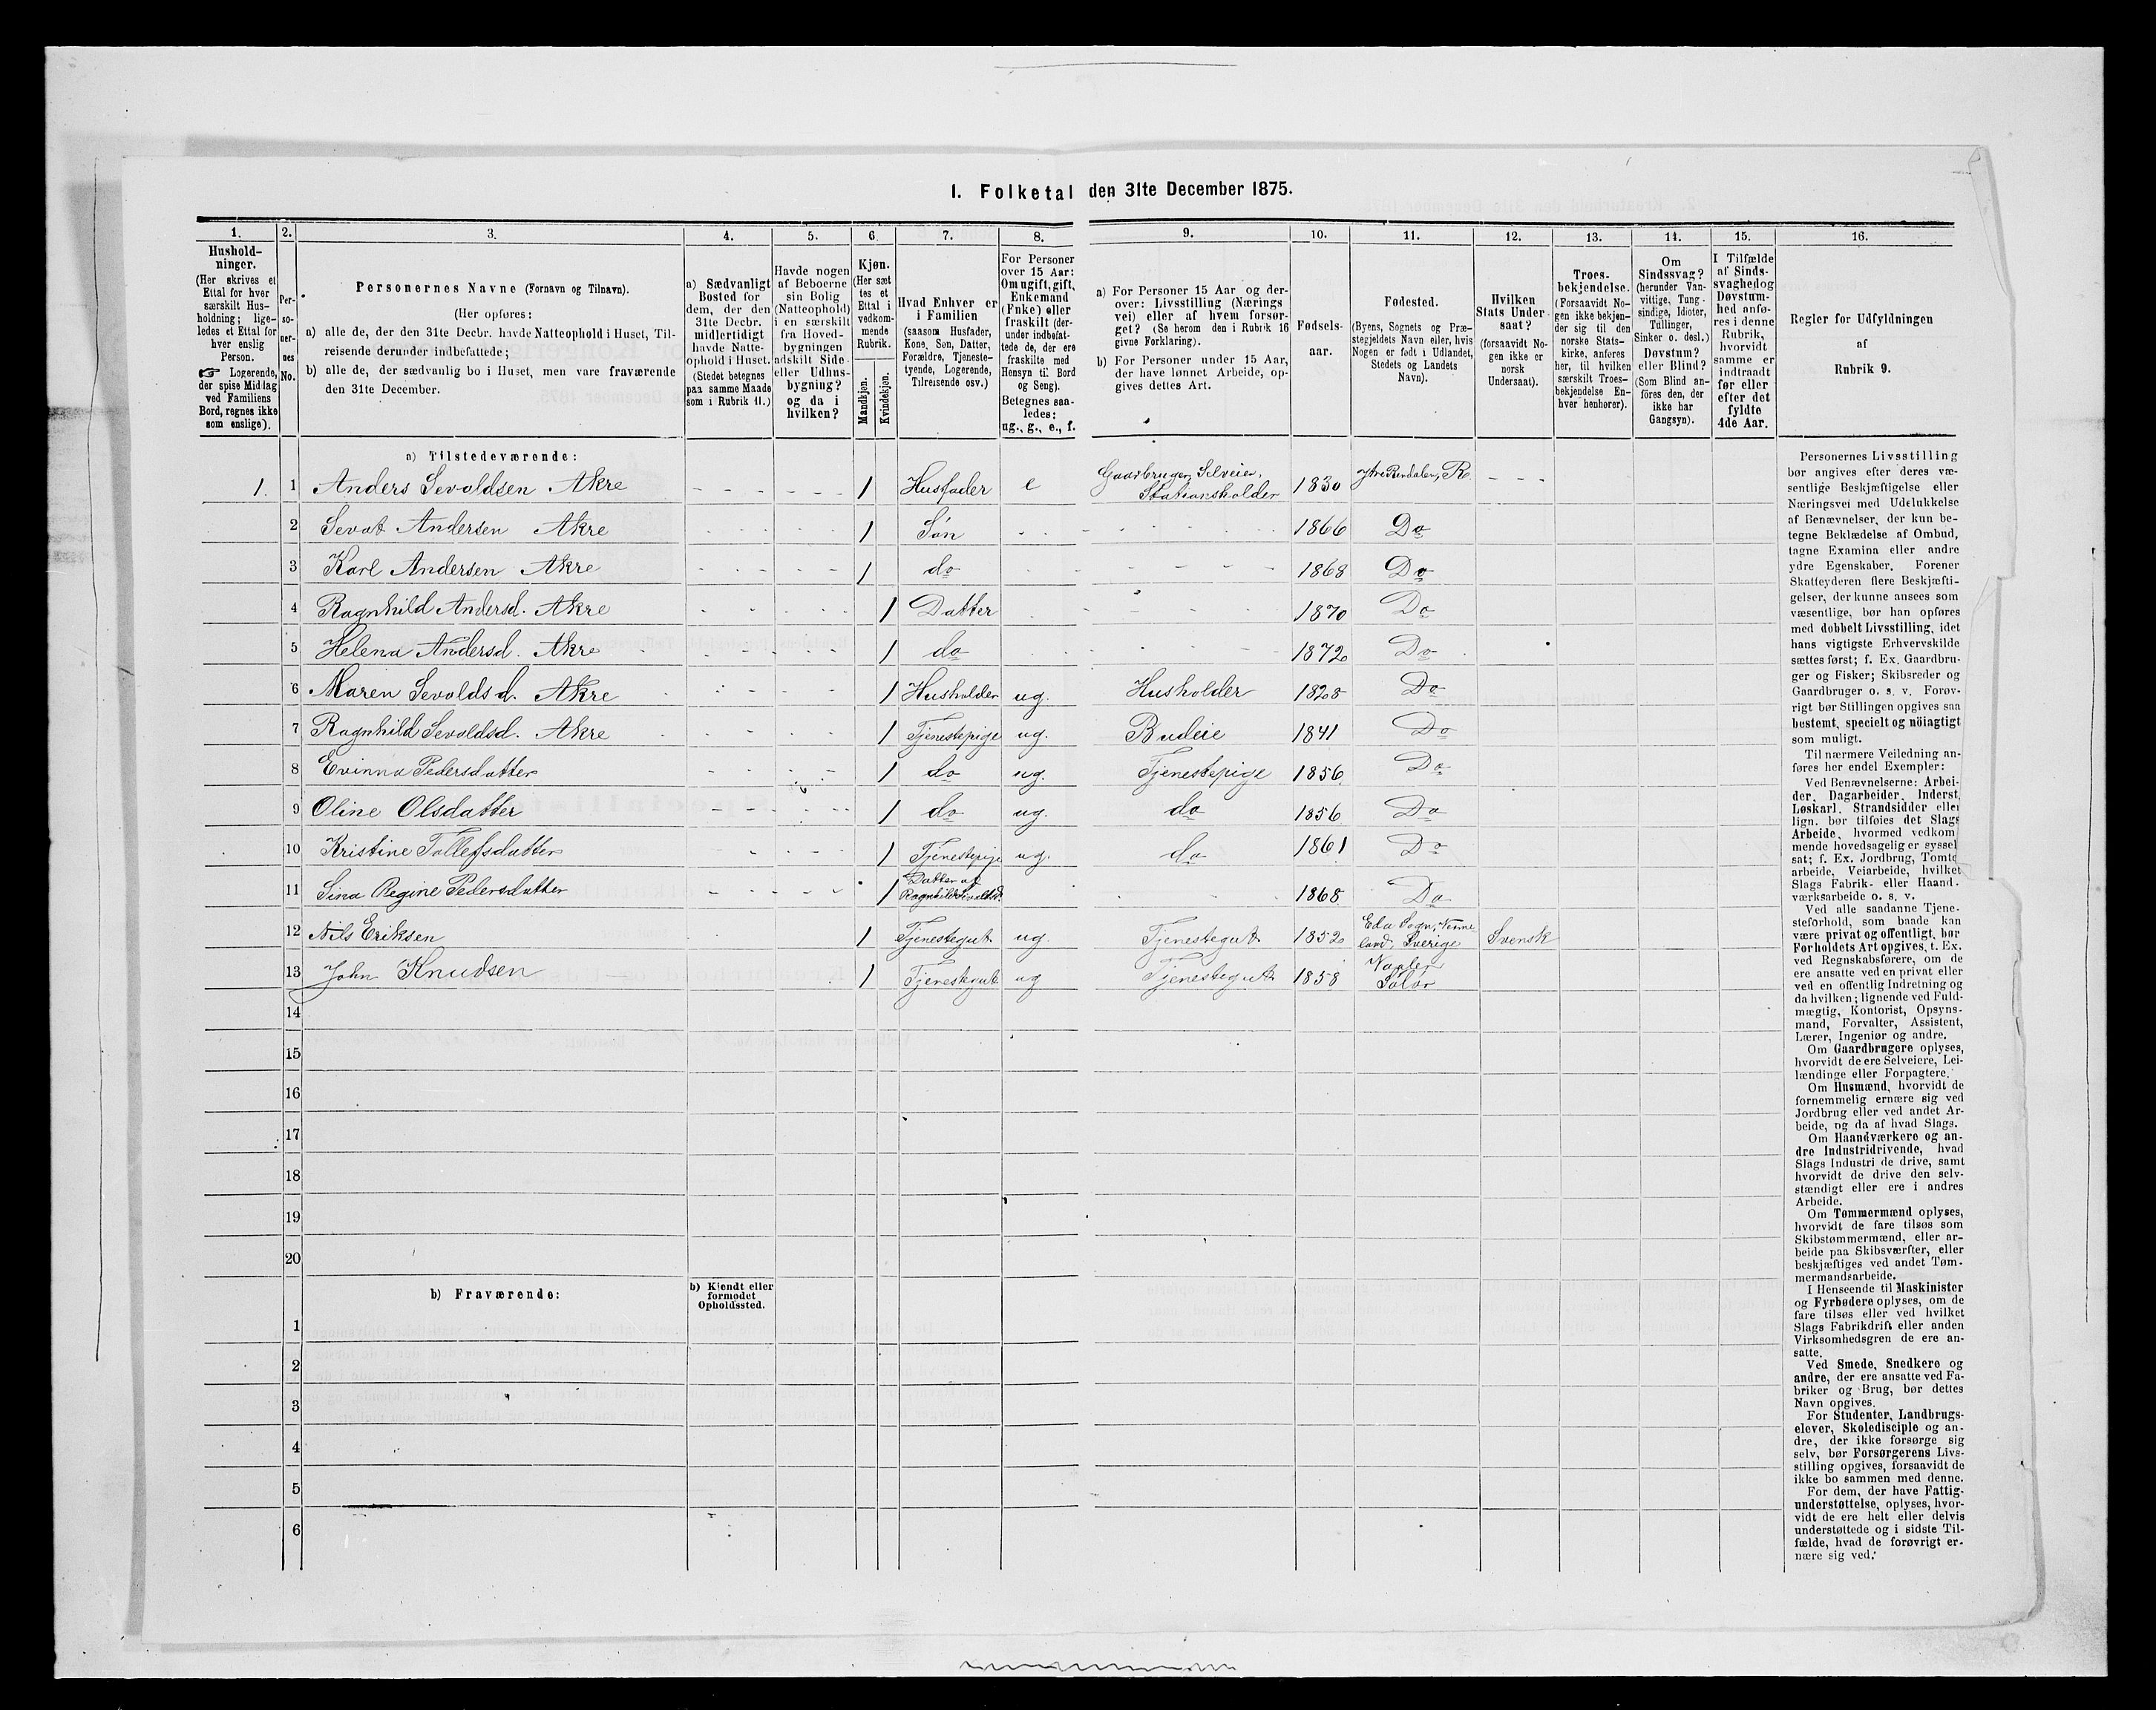 1. Folketal den 31te December 1875.
1. 2. 3. 4. 5. 6. 7. 8. 9. 10. 11. 12. 13. 14. 15. 16.
Hushold-
ninger.
(Her skrives et
Ettal for hver
særskilt Hus-
holdning; lige-
ledes et Ettal for
hver enslig
Person.
☞ Logerende,
der spise Middag
ved Familiens
Bord, regnes ikke
som enslige).
Per-
so-
ner-
nes
No.
Personernes Navne (Fornavn og Tilnavn).
(Her opføres:
a) alle de, der den 31te Decbr. havde Natteophold i Huset, Til-
reisende derunder indbefattede;
b) alle de, der sædvanlig bo i Huset, men vare fraværende
den 31te December.
a) Sædvanligt
Bosted for
dem, der den
31te Decbr.
midlertidigt
havde Natte-
ophold i Huset.
(Stedet betegnes
paa samme Maade
som i Rubrik 11.)
Havde nogen
af Beboerne
sin Bolig
(Natteophold)
i en særskilt
fra Hoved-
bygningen
adskilt Side-
eller Udhus-
bygning?
og da i
hvilken?
Kjøn.
(Her sæt
tes et
Ettal i
vedkom-
mende
Rubrik.
Mandkjøn.
Kvindekjøn.
Hvad Enhver er
i Familien
(saasom Husfader,
Kone, Søn, Datter,
Forældre, Tjeneste-
tyende, Logerende,
Tilreisende osv.)
For Personer
over 15 Aar:
Om ugift, gift,
Enkemand
(Enke) eller
fraskilt (der-
under indbefat-
tede de, der ere
fraskilte med
Hensyn til Bord
og Seng).
Betegnes saa-
ledes:
ug., g., e., f.
a) For Personer 15 Aar og der-
over: Livsstilling (Nærings
vei) eller af hvem forsør-
get? (Se herom den i Rubrik 16
givne Forklaring).
b) For Personer under 15 Aar,
der have lønnet Arbeide, op-
gives dettes Art.
Fødsels-
aar.
Fødested.
(Byens, Sognets og Præ-
stegjeldets Navn eller, hvis
Nogen er født i Udlandet,
Stedets og Landets
Navn).
Hvilken
Stats Under-
saat?
(forsaavidt No-
gen ikke er
norsk
Undersaat).
Troes-
bekjendelse.
(Forsaavidt No-
gen ikke bekjen-
der sig til den
norske Stats-
kirke, anføres
her, til hvilken
særskilt Troes-
bekjendelse En-
hver henhører).
Om
Sindssvag?
(herunder Van-
vittige, Tung-
sindige, Idioter,
Tullinger,
Sinker o. desl.)
Døvstum?
eller Blind?
(Som Blind an-
föres den, der
ikke har
Gangsyn).
I Tilfælde
af Sinds-
svaghed og
Døvstum-
hed anfø-
res i denne
Rubrik,
hvorvidt
samme er
indtraadt
før eller
efter det
fyldte
4de Aar.
Regler for Udfyldningen
af
Rubrik 9.
a) Tilstedeværende:
1. 1 Anders Sevoldsen Akre 1 Husfader e Gaardbruger, Selveier, Stationsholder 1830 Ytre Rendalen, R.
2 Sevat Andersen Akre 1 Søn 1866 Do
3 Karl Andersen Akre 1 do 1868 Do
4 Ragnhild Andersd. Akre 1 Datter 1870 Do
5 Helena Andersd. Akre 1 do 1872 Do
6 Maren Sevoldsd. Akre 1 Husholder ug. Husholder 1828 Do
7 Ragnhild Sevoldsd. Akre 1 Tjenestepige ug. Budeie 1841 Do
8 Evinna Pedersdatter 1 do ug. Tjenestepige 1856 Do
9 Oline Olsdatter 1 do ug. do 1856 Do
10 Kristine Tollefsdatter 1 Tjenestepige ug. do 1861 Do
11 Sina Regine Pedersdatter 1 Datter af Ragnhild Sevoldsd. 1868 Do
12 Nils Eriksen 1 Tjenestegut ug. Tjenestegut 1852 Eda Sogn, Verme
land, Sverige Svensk
13 John Knudsen 1 Tjenestegut ug Tjenestegut 1858 Vaaler
Solør
14
15
16
17
18
19
20
b) Fraværende:
b) Kjendt eller
formodet
Opholdssted.
1
2
3
4
5
6
Personernes Livsstilling
bør angives efter deres væ-
sentlige Beskjæftigelse eller
Næringsvei med Udelukkelse
af Benævnelser, der kun be-
tegne Beklædelse af Ombud,
tagne Examina eller andre
ydre Egenskaber. Forener
Skatteyderen flere Beskjæfti-
gelser, der kunne ansees som
væsentlige, bør han opføres
med dobbelt Livsstilling, idet
hans vigtigste Erhvervskilde
sættes først; f. Ex. Gaardbru-
ger og Fisker; Skibsreder og
Gaardbruger o. s. v. Forøv-
rigt bør Stillingen opgives saa
bestemt, specielt og nöiagtigt
som muligt.
Til nærmere Veiledning an-
føres her endel Exempler:
Ved Benævnelserne: Arbei-
der, Dagarbeider, Inderst,
Løskarl, Strandsidder eller
lign. bør tilføies det Slags
Arbeide, hvormed vedkom
mende hovedsagelig er syssel
sat; f. Ex. Jordbrug, Tomte
arbeide, Veiarbeide, hvilket
Slags Fabrik- eller Haand-
værksarbeide o. s. v.
Ved alle saadanne Tjene-
steforhold, som baade kan
være privat og offentligt, bør
Forholdets Art opgives, t. Ex.
ved Regnskabsførere, om de
ere ansatte ved en privat eller
ved en offentlig Indretning og
da hvilken; lignende ved Fuld-
mægtig, Kontorist, Opsyns-
mand, Forvalter, Assistent,
Lærer, Ingeniør og andre.
Om Gaardbrugere oplyses,
hvorvidt de ere Selveiere, Lei-
lændinge eller Forpagtere.
Om Husmænd, hvorvidt de
fornemmelig ernære sig ved
Jordbrug eller ved andet Ar-
beide, og da af hvad Slags.
Om Haandværkere og an-
dre Industridrivende, hvad
Slags Industri de drive, samt
hvorvidt de drive den selv-
stændigt eller ere i andres
Arbeide.
Om Tømmermænd oplyses,
hvorvidt de fare tilsøs som
Skibstømmermænd, eller ar-
beide paa Skibsværfter, eller
beskjæftiges ved andet Tøm-
mermandsarbeide.
I Henseende til Maskinister
og Fyrbødere oplyses, om de
fare tilsøs eller ved hvilket
Slags Fabrikdrift eller anden
Virksomhedsgren de ere an-
satte.
Ved Smede, Snedkere og
andre, der ere ansatte ved Fa-
briker og Brug, bør dettes
Navn opgives.
For Studenter, Landbrugs-
elever, Skoledisciple og an-
dre, der ikke forsørge sig
selv, bør Forsørgerens Livs-
stilling opgives, forsaavidt de
ikke bo sammen med denne.
For dem, der have Fattig-
understøttelse, oplyses, hvor-
vidt de ere helt eller delvis
understøttede og i sidste Til-
fælde, hvad de forøvrigt er-
nære sig ved.